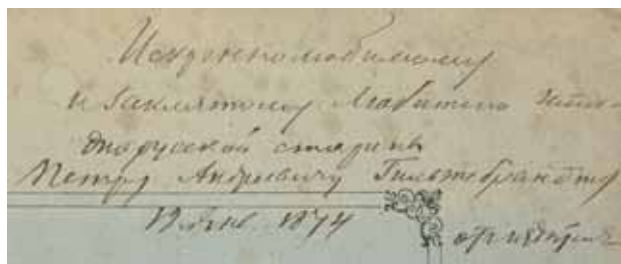 Искреннолюбимому
и заклятому любителю
старины
Петру Андреевичу Гильтебрандту
1874
от издателя